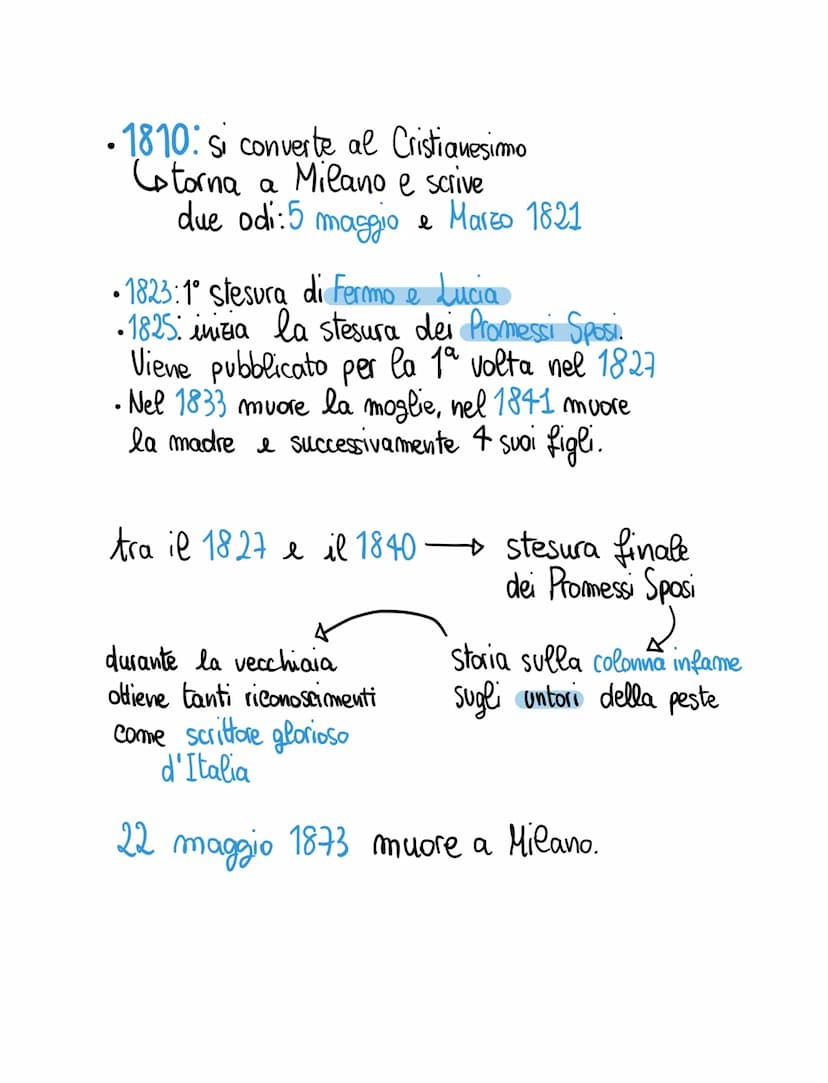 • 1810: si converte al Cristianesimo
↳ torna a Milano e scrive
due odi: 5 maggio e Marzo 1821
• 1823: 1° stesura di Fermo e Lucia
• 1825: inizia la stesura dei Promessi Sposi.
Viene pubblicato per la 1ª volta nel 1827
• Nel 1833 muore la moglie, nel 1841 muore
la madre e successivamente 4 suoi figli.
tra il 1827 e il 1840 → stesura finale
dei Promessi Sposi
storia sulla colonna infame
sugli untori della peste
durante la vecchiaia
ottiene tanti riconoscimenti
come scrittore glorioso
d'Italia
22 maggio 1873 muore a Milano.